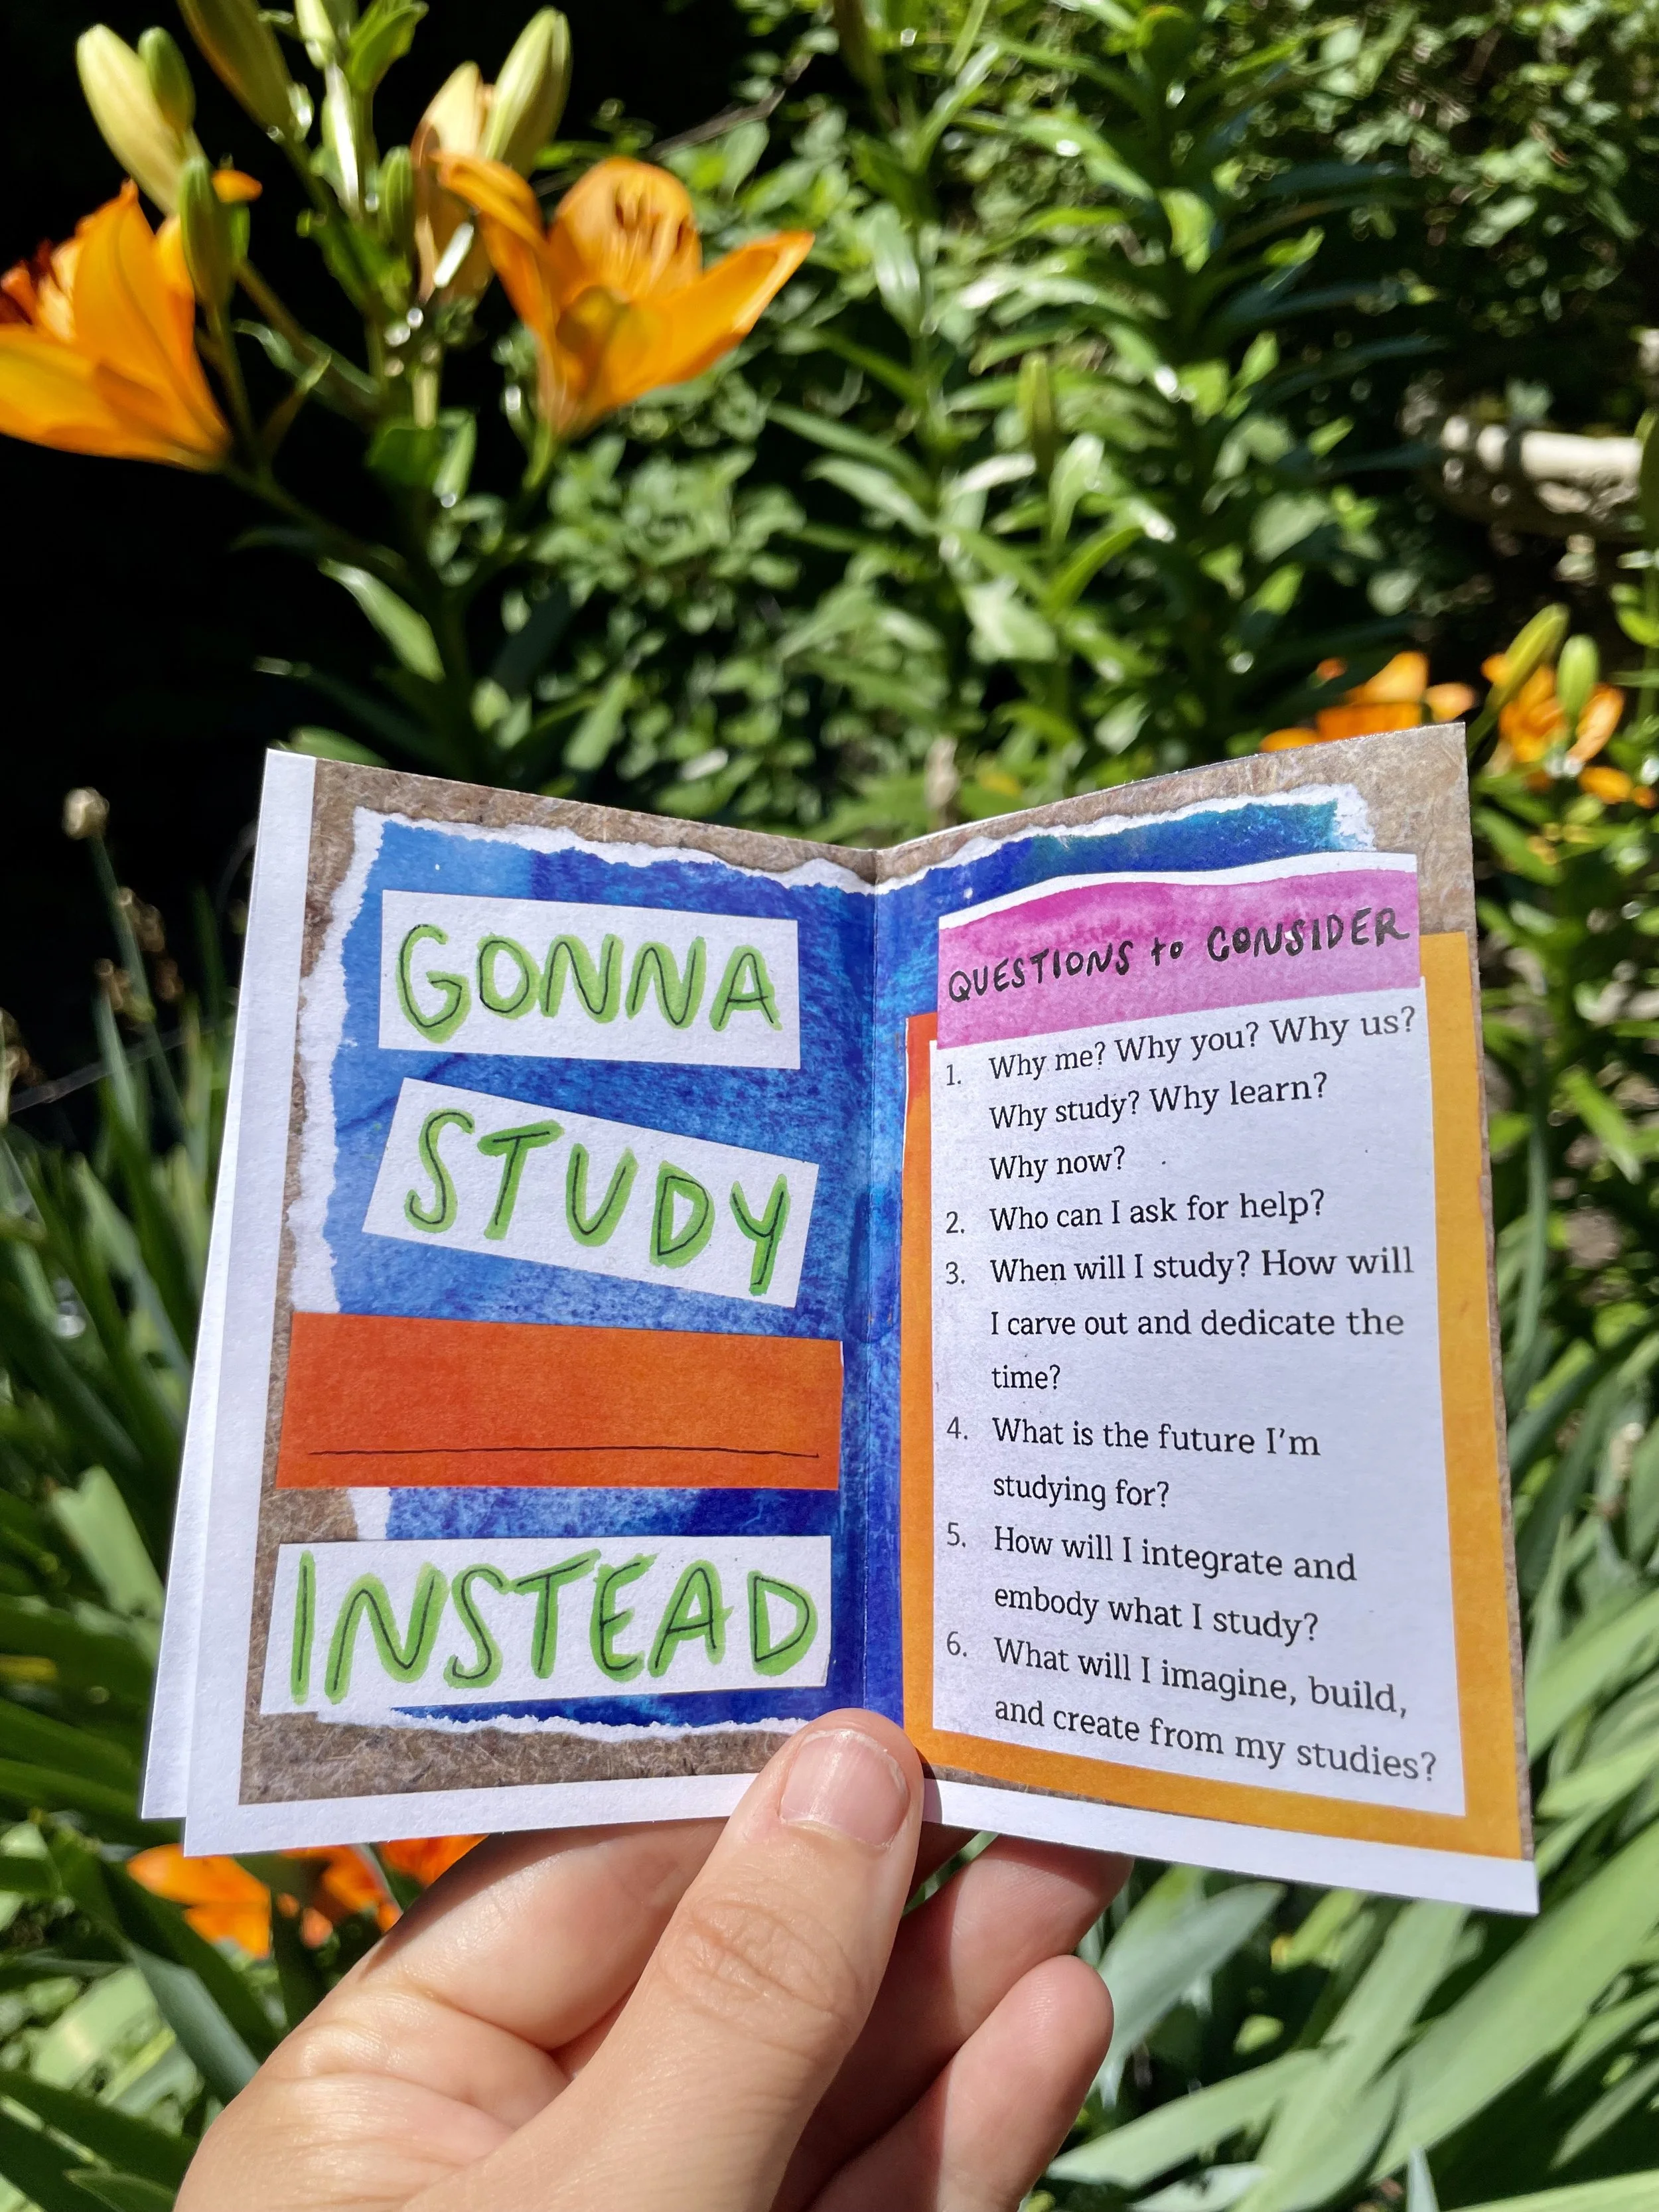 GONNA
STUDY
INSTEAD
QUESTIONS to CONSIDER
1. Why me? Why you? Why us?
Why study? Why learn?
Why now?
2. Who can I ask for help?
3. When will I study? How will
I carve out and dedicate the
time?
4. What is the future I'm
studying for?
5. How will I integrate and
embody what I study?
6. What will I imagine, build,
and create from my studies?